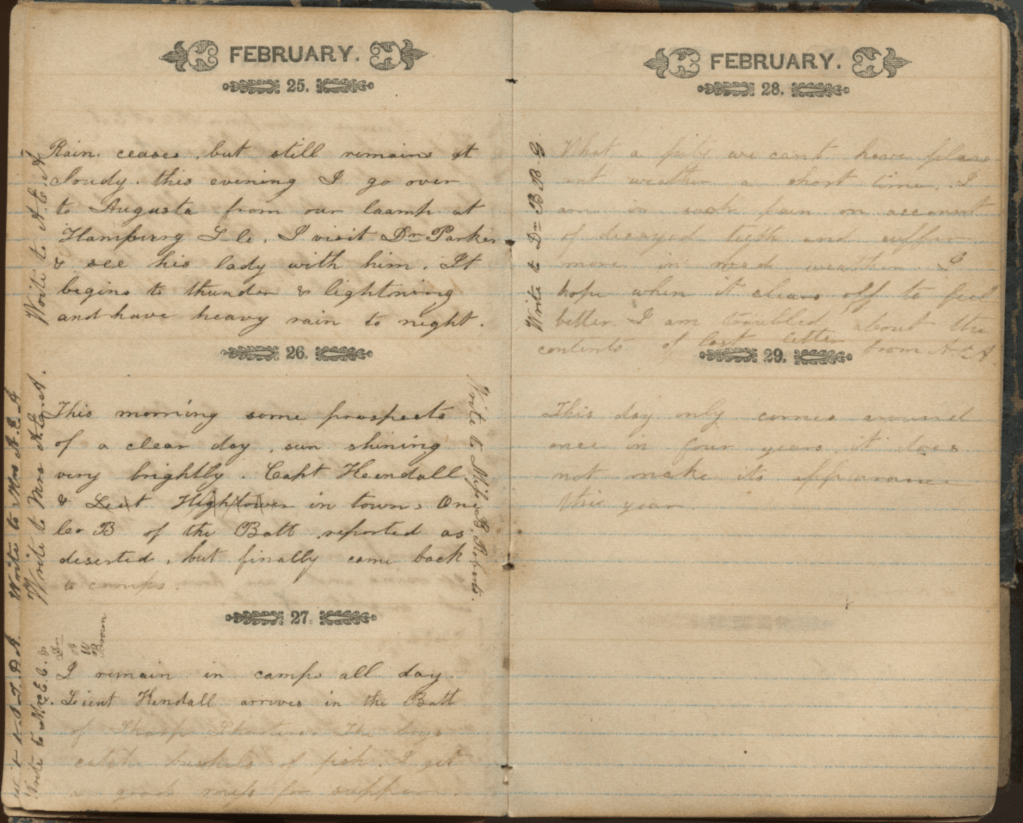 FEBRUARY.
25.
Rain ceases, but still remains
cloudy this evening I go over
to Augusta from our camp at
Hamburg I visit Dr Parker
& see his lady with him. It
begins to thunder & lightning
and have heavy rain to night.
Write to A. E. A.
26.
This morning some prospects
of a clear day, sun shining
very brightly. Capt Kendall
& Lieut Hightower in town. One
Co B of the Batt reported as
deserted, but finally came back
to camps.
Write to Mrs A. E. A
Write to Mrs A. E. A.
Write to
27.
I remain in camps all day.
Lieut Kendall arrives in the Batt
of Sharp Shooters The boys
catch buckets of fish. I get
a good mess for supper.
Write to
Brown
FEBRUARY.
28.
What a pity we cant have pleas
ant weather a short time. I
am in such pain on account
of decayed teeth and suffer
more in weather. I
hope when it clears off to feel
better. I am troubled about the
contents of last letter from A. E. A.
Write to Dr B B G
29.
This day only comes around
once in four years, it does
not make its appearance
this year